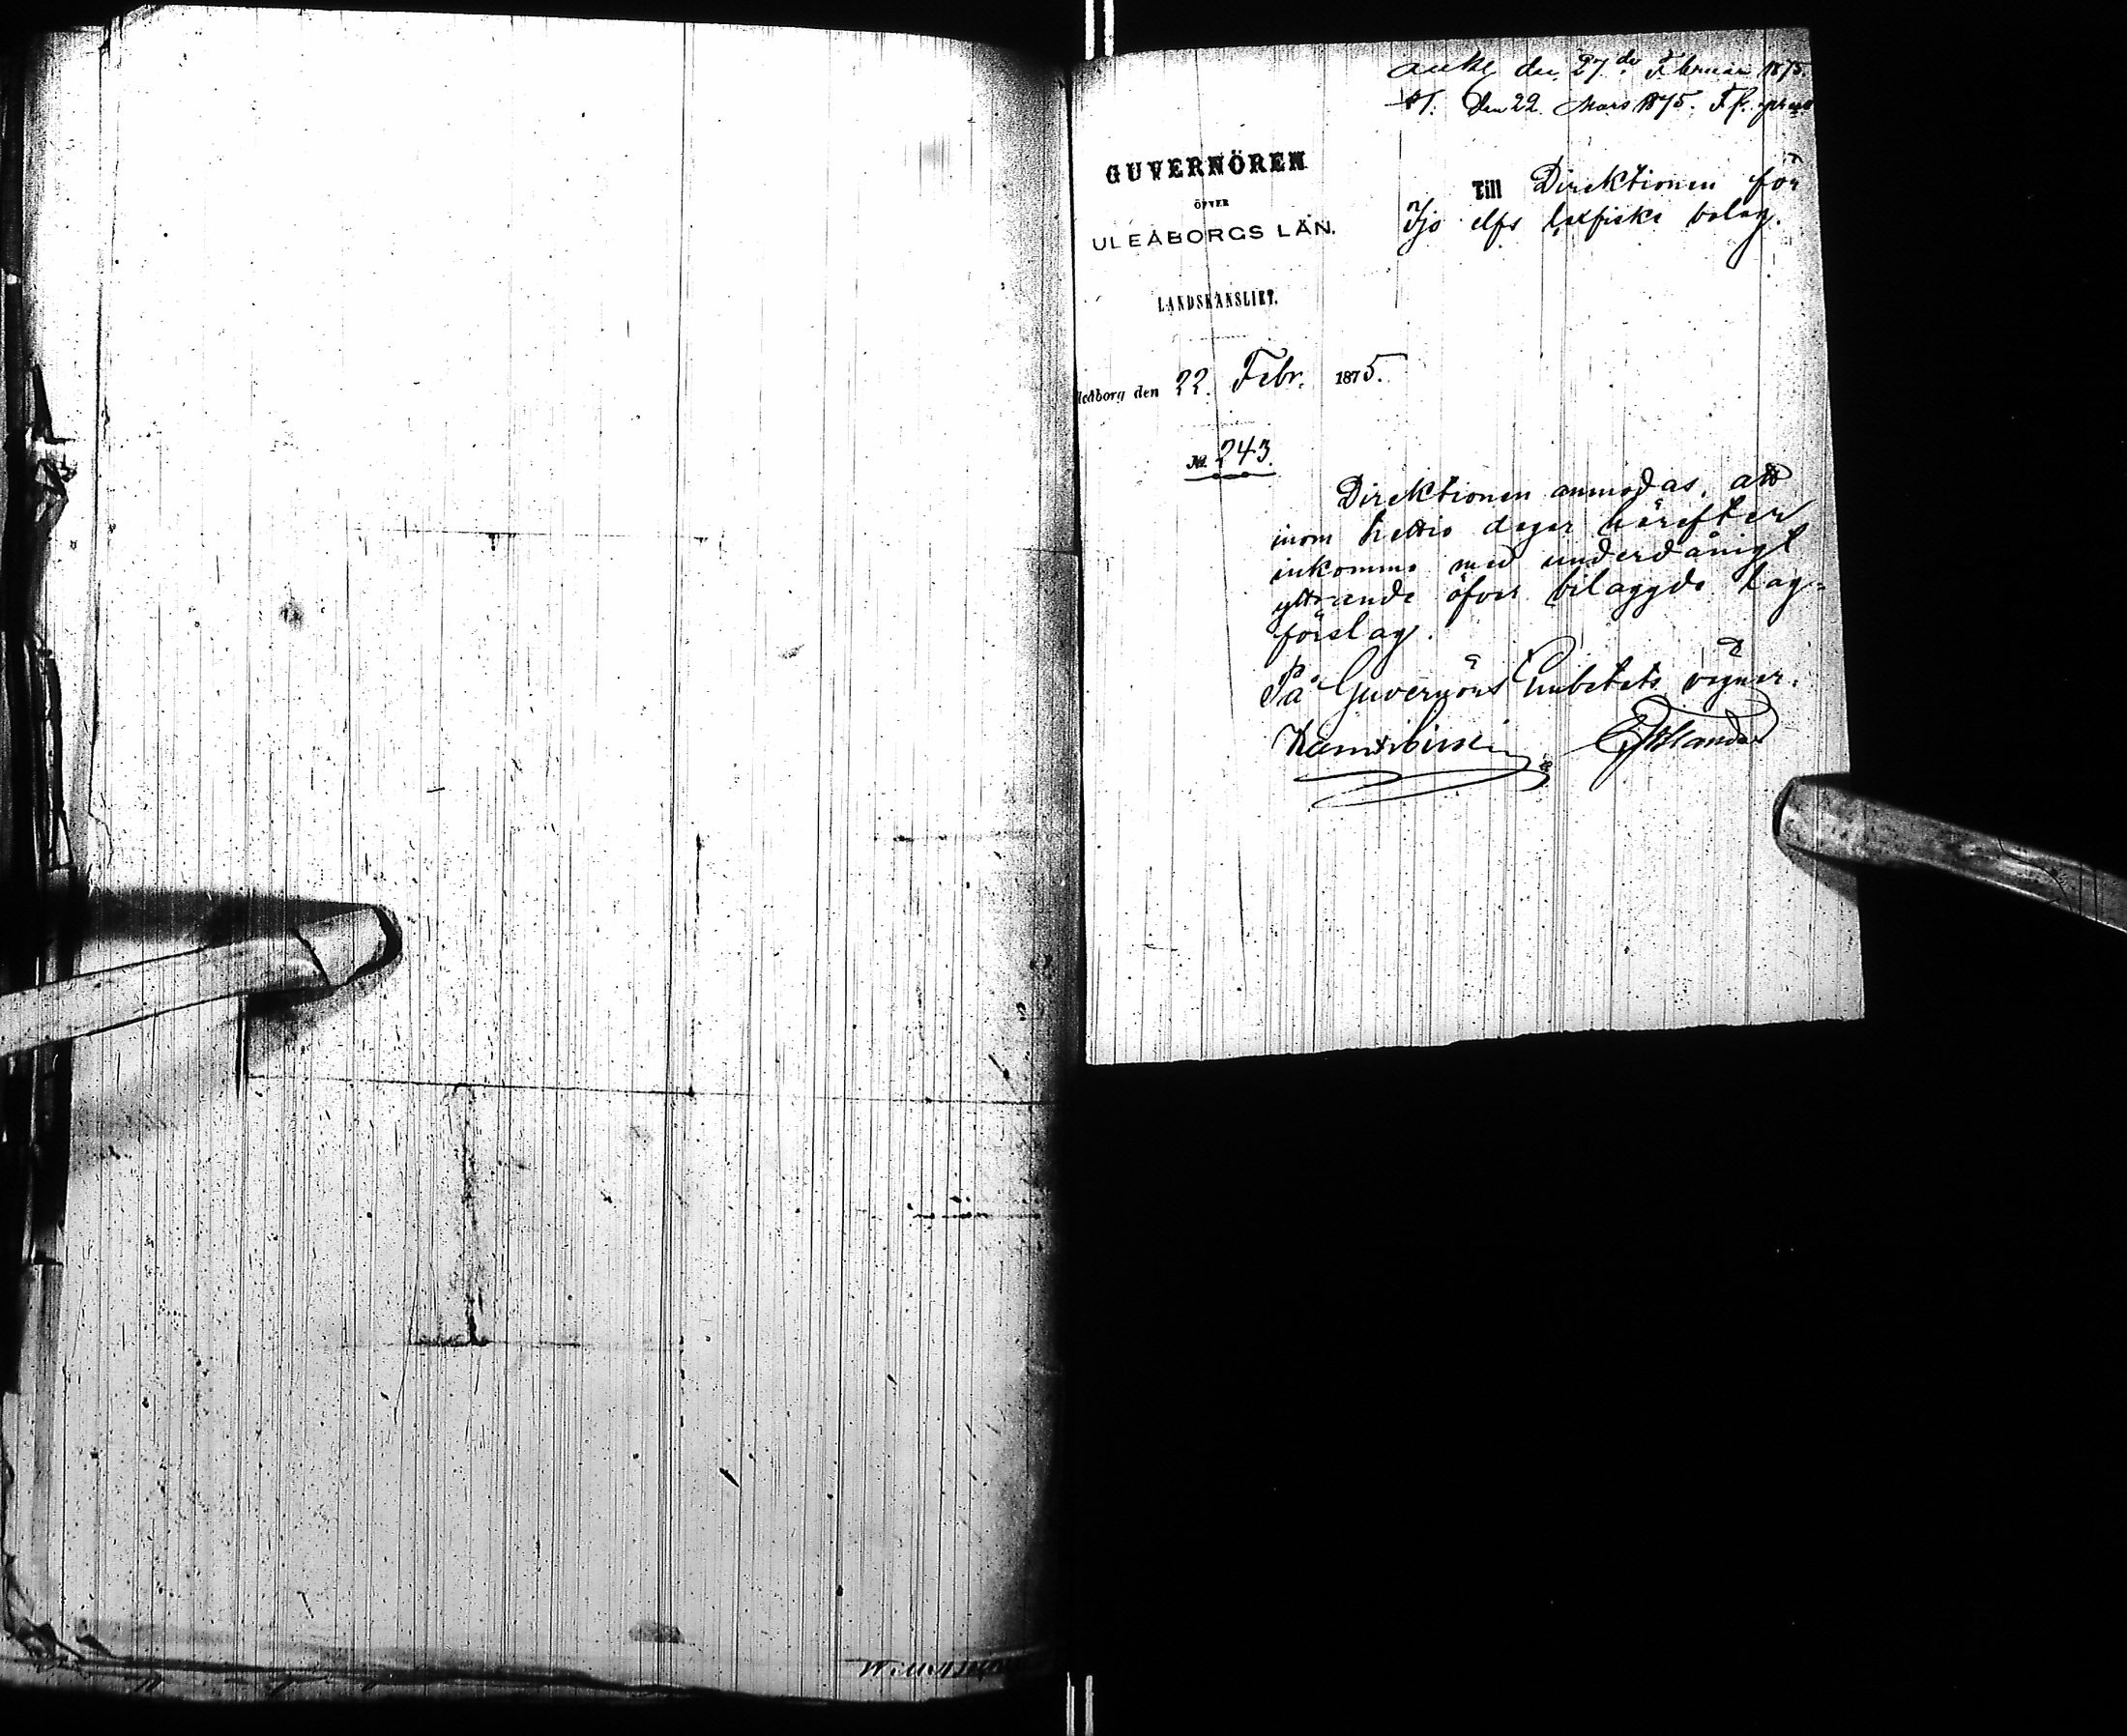 den 27de Februari 1875.
den 22 Mars 1875.
GUVERNÖREN
ÖFVER
ULEÅBORGS LÄN.
LANDSKANSLIET.
Till Direktionen för
Ijo elfs laxfiske bolag.
Uleåborg den 22 Febr. 1875.
No 243.
Direktionen anmodas, att
inom trettio dagar härefter
inkomma med underdånigt
yttrande öfver bilaggda lag-
förslag.
På Guvernörs Embetets vägnar: